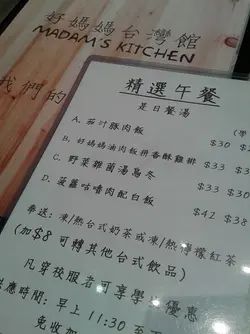 好媽媽台灣館
MADAM'S KITCHEN
我們的
精選午餐
是日餐湯
A. 茄汁豚肉飯 $30
B. 好媽媽滷肉飯拼香酥雞排 $33
C. 野菜雞菌湯烏冬 $33 $30
D. 菠蘿咕嚕肉配白飯 $42 $38
奉送: 凍/熱台式奶茶或凍/熱檸檬紅茶
(加$8 可轉其他台式飲品)
凡穿校服者可享學 優惠
應時間: 早上 11:30 至下
免收加